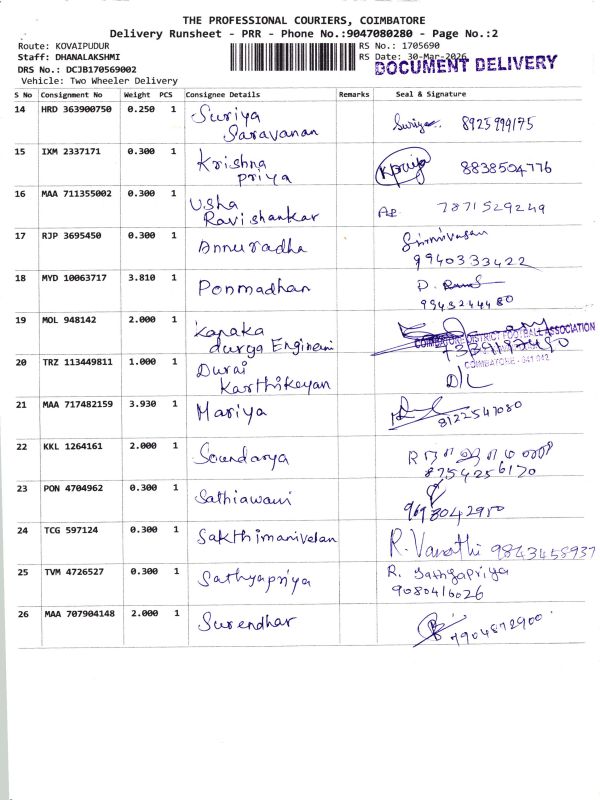 THE PROFESSIONAL COURIERS, COIMBATORE
Delivery Runsheet - PRR - Phone No.:9047080280 - Page No.:2
Route: KOVAIPUDUR
Staff: DHANALAKSHMI
DRS No.: DCJB170569002
Vehicle: Two Wheeler Delivery
RS No.: 1705690
RS Date: 30-Mar-2026
DOCUMENT DELIVERY
S No Consignment No Weight PCS Consignee Details Remarks Seal & Signature
14 HRD 363900750 0.250 1 Suriya Saravanan Suriya 8925999175
15 IXM 2337171 0.300 1 Krishna priya Kpriya 8838504776
16 MAA 711355002 0.300 1 Usha Ravishankar 7871529249
17 RJP 3695450 0.300 1 Annuradha Srinivasan 9940333422
18 MYD 10063717 3.810 1 Ponmadhan 9943244480
19 MOL 948142 2.000 1 Kanaka durga Engineni COIMBATORE DISTRICT FOOTBALL ASSOCIATION COIMBATORE - 641 042
20 TRZ 113449811 1.000 1 Durai Karthikeyan D/L
21 MAA 717482159 3.930 1 Mariya 8122547080
22 KKL 1264161 2.000 1 Soundarya 8754256170
23 PON 4704962 0.300 1 Sathiawani
24 TCG 597124 0.300 1 Sakthimanivelan R. Vanathi 9843458937
25 TVM 4726527 0.300 1 Sathyapriya R. Sathyapriya 9080416026
26 MAA 707904148 2.000 1 Surendhar 7904872900